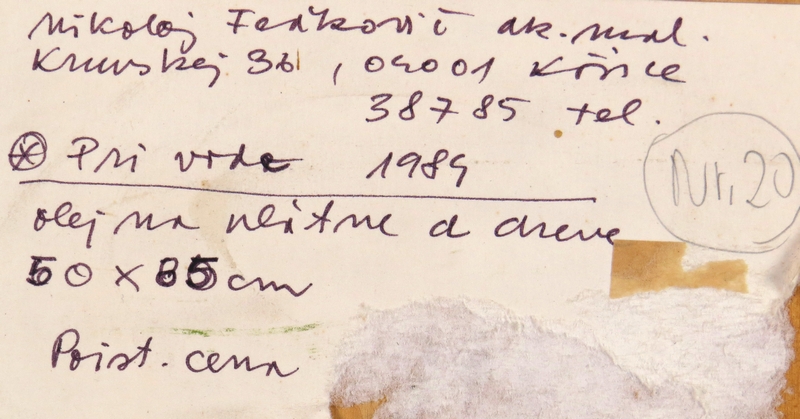 Nikolaj Feďkovič ak. mal.
Krmanova 36, 04001 Košice
38785 tel.
Pri vode 1984
Nr. 20
olej na plátne a dreve
50 x 85 cm
Poist. cena